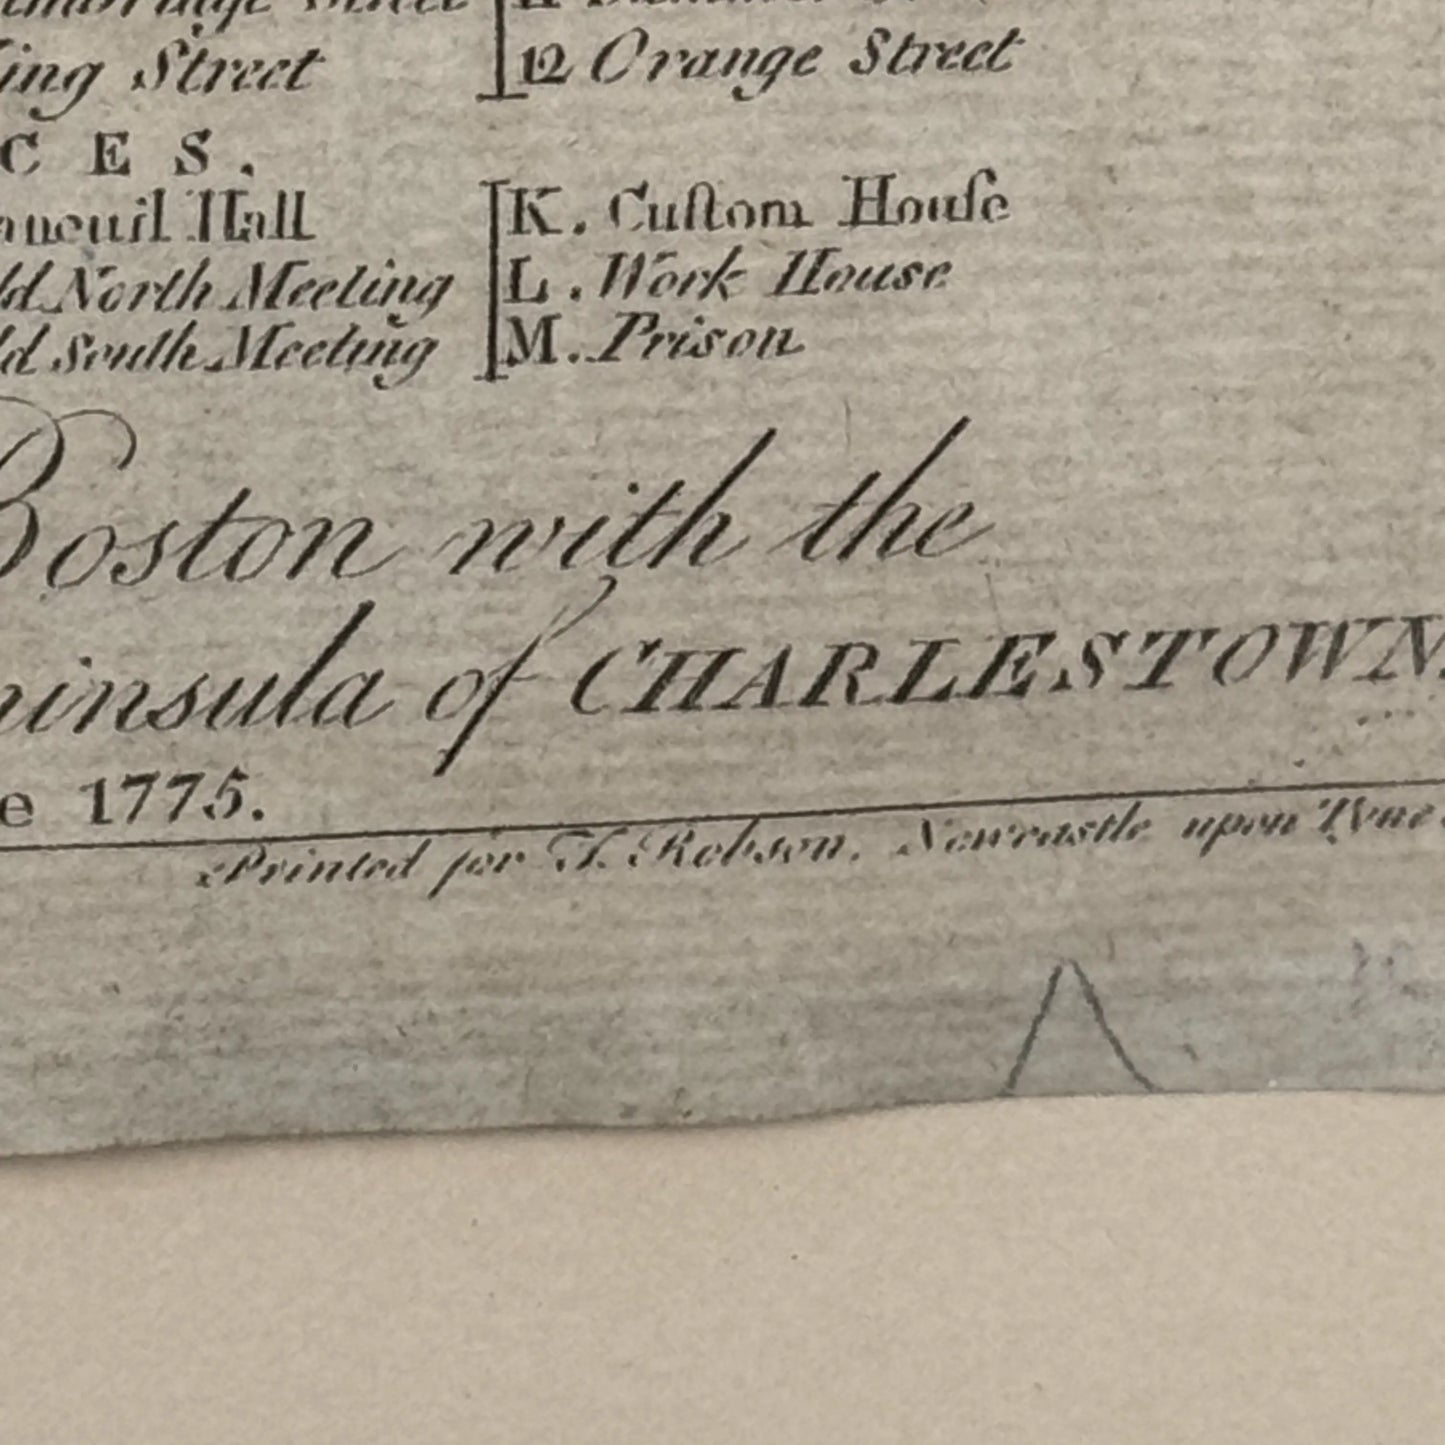 King Street 12 Orange Street
CES.
aneuil Hall K. Cuſtom Houſe
ld North Meeting L. Work House
ld South Meeting M. Prison
Boston with the
ninsula of CHARLESTOWN.
e 1775.
Printed for T. Robson, Newcastle upon Tyne